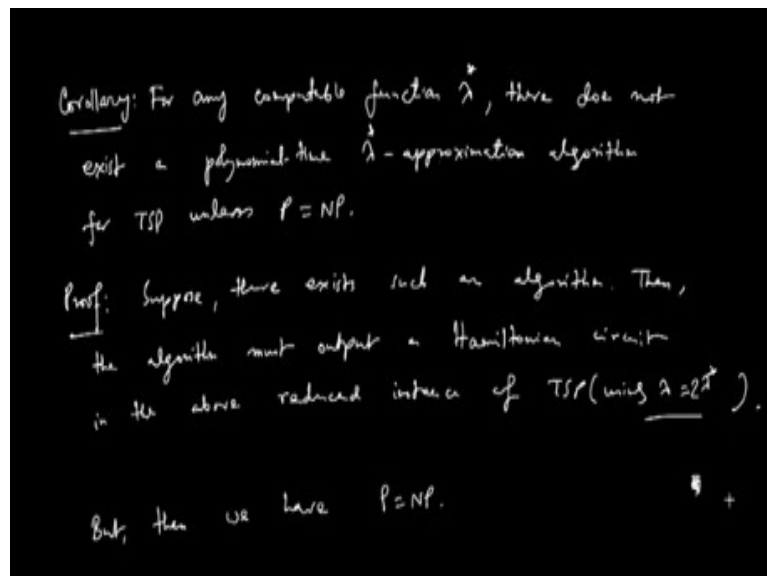 Corollary: For any computable function λ*, there doe not
exist a polynomial-time λ*-approximation algorithm
for TSP unless P = NP.
Proof: Suppose, there exists such an algorithm. Then,
the algorithm must output a Hamiltonian circuit
in the above reduced instance of TSP (using λ = 2λ*).
But, then we have P = NP.